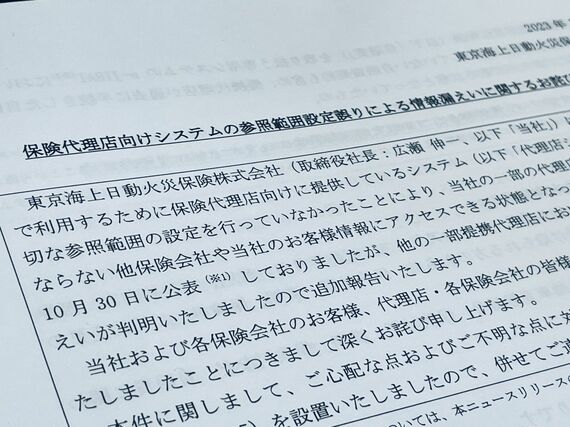 2023 年
東京海上日動火災保
保険代理店向けシステムの参照範囲設定誤りによる情報漏えいに関するお詫び
東京海上日動火災保険株式会社（取締役社長：広瀬 伸一、以下「当社」）は
で利用するために保険代理店向けに提供しているシステム（以下「代理店シ
切な参照範囲の設定を行っていなかったことにより、当社の一部の代理店
ならない他保険会社や当社のお客様情報にアクセスできる状態となっ
10 月 30 日に公表（※1）しておりましたが、他の一部提携代理店にお
えいが判明いたしましたので追加報告いたします。
当社および各保険会社のお客様、代理店・各保険会社の皆様
たしましたことにつきまして深くお詫び申し上げます。
本件に関しまして、ご心配な点およびご不明な点に対
を設置いたしましたので、併せてご連
ついては、本ニュースリリースの